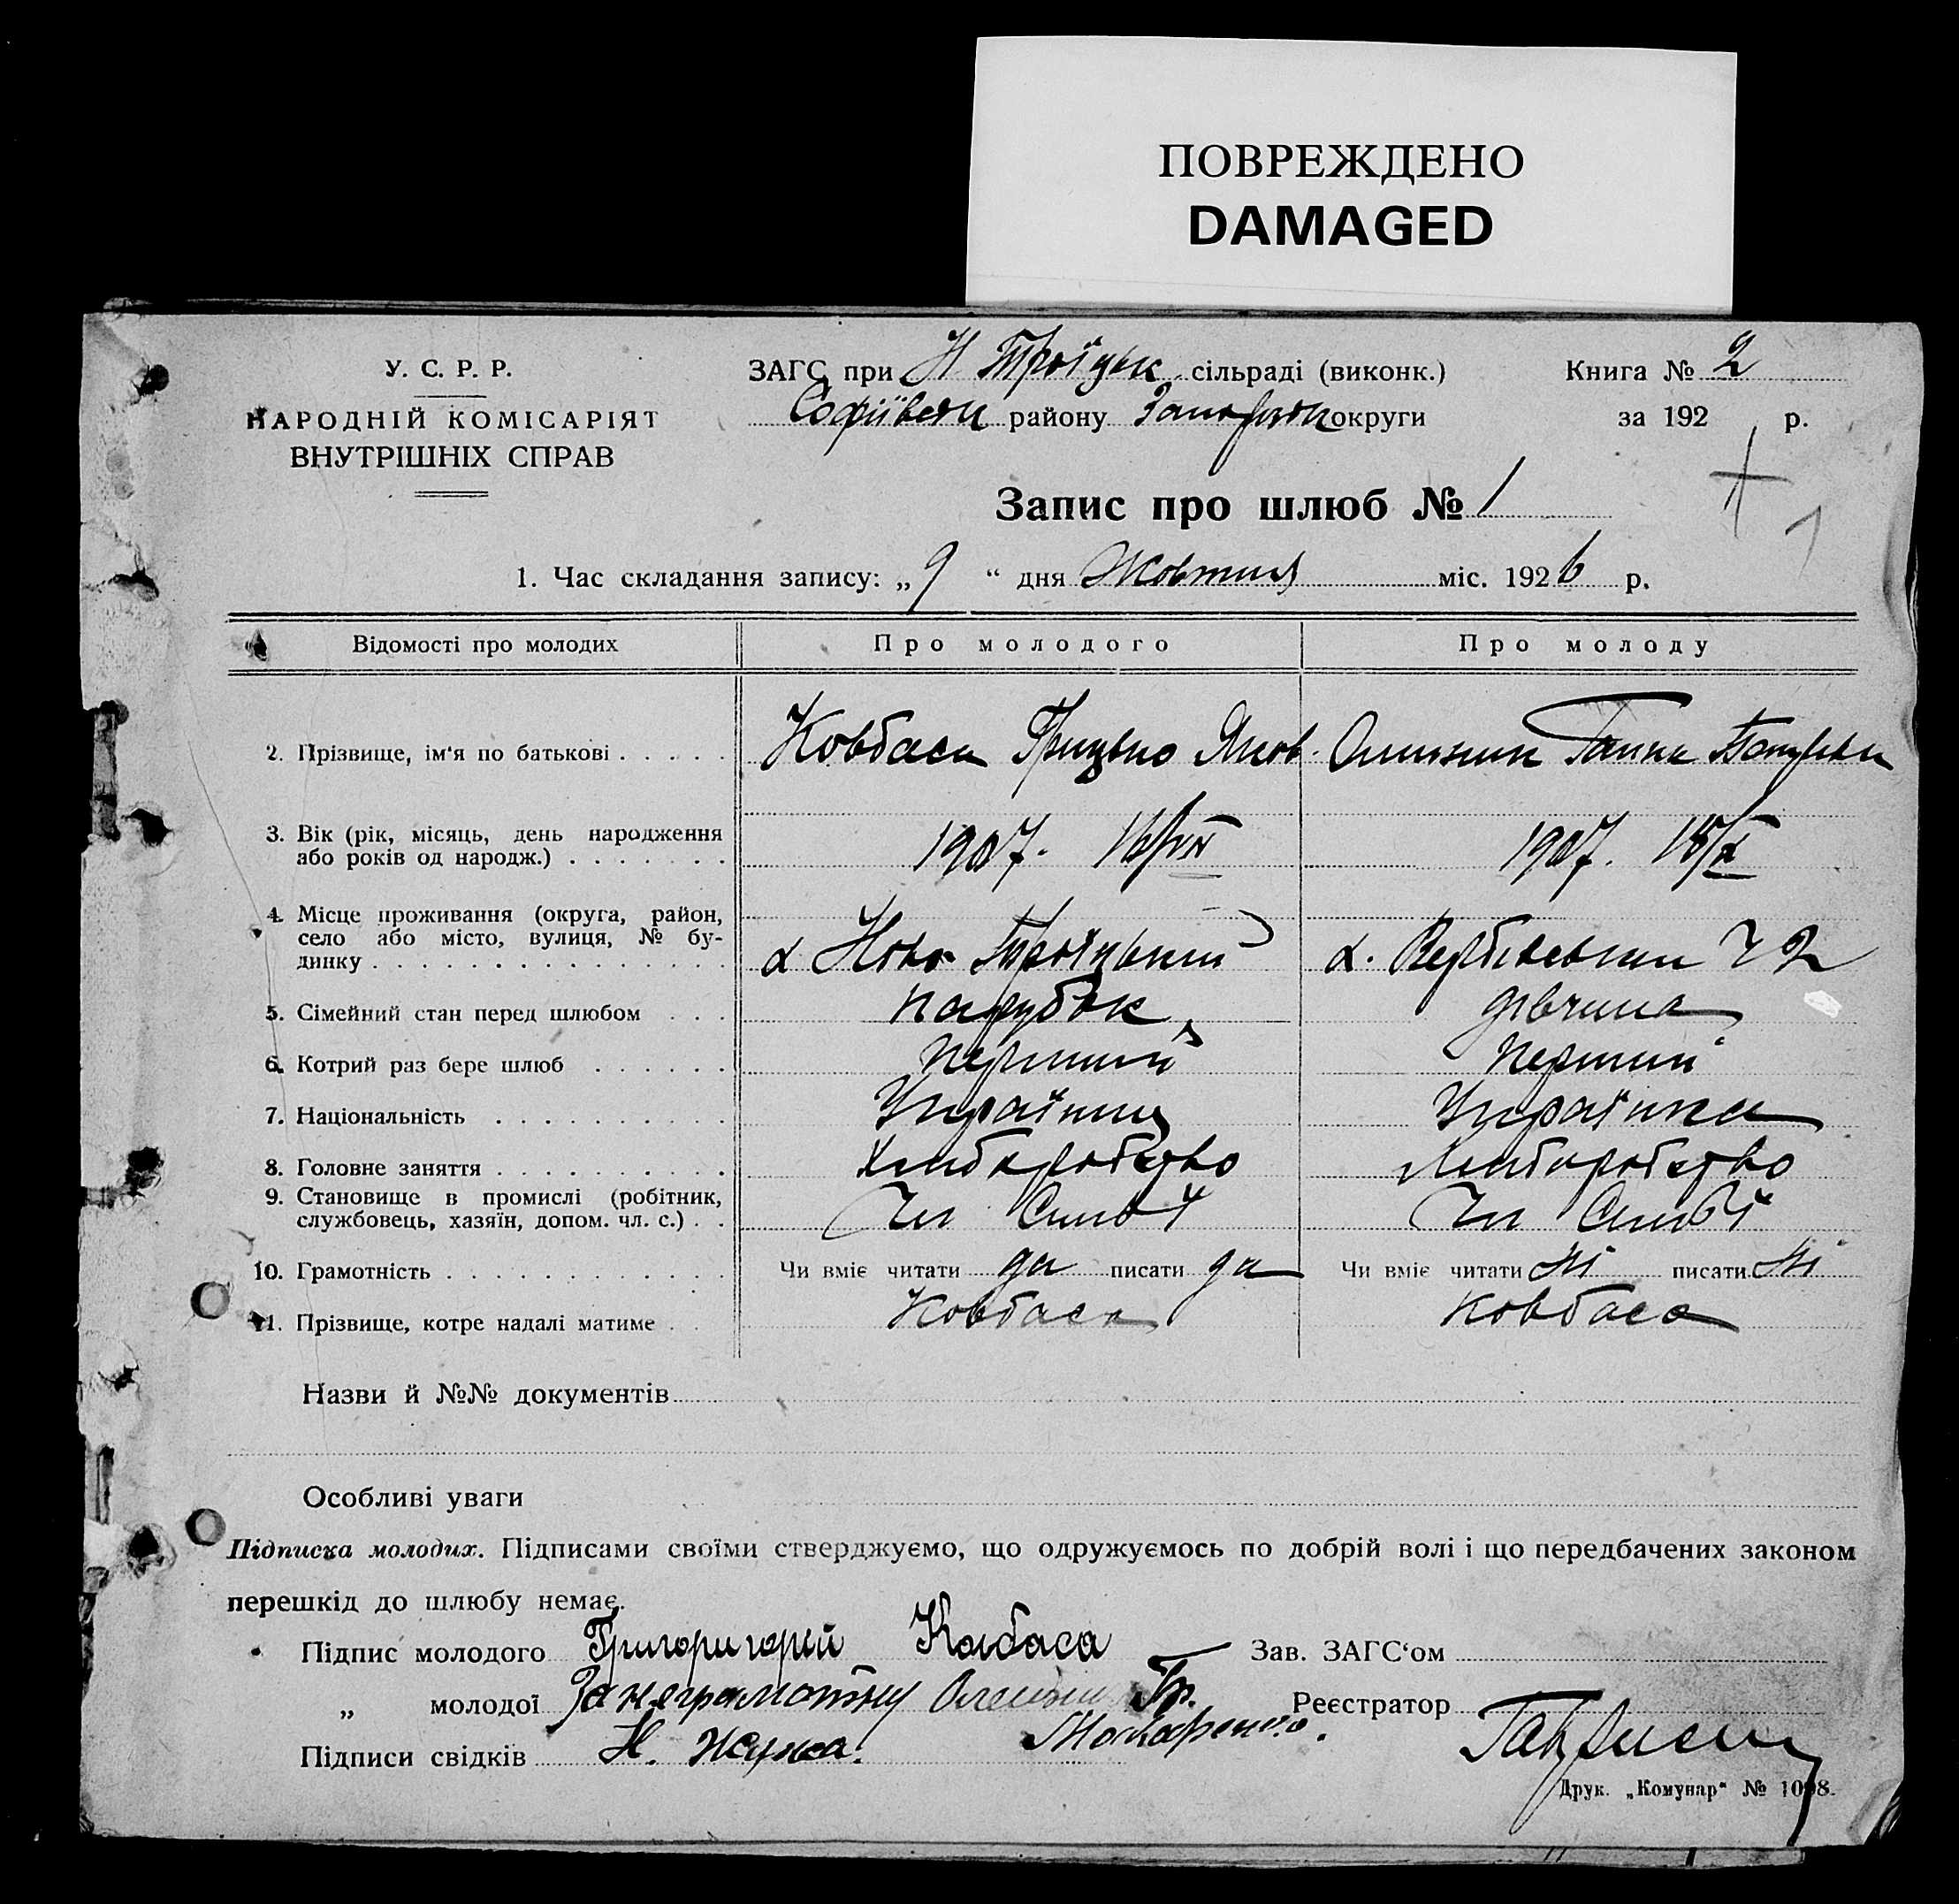 ПОВРЕЖДЕНО
DAMAGED
У. С. Р. Р.
НАРОДНІЙ КОМІСАРІЯТ
ВНУТРІШНІХ СПРАВ
ЗАГС при Н Троїцьк сільраді (виконк.)
Софіївськ району округи
Книга № 2
за 192 р.
Запис про шлюб № 1
1. Час складання запису: „9“ дня Жовтня міс. 1926 р.
Відомості про молодих Про молодого Про молоду
2. Прізвище, ім'я по батькові Ковбаса Грицько Яков. Ганна
3. Вік (рік, місяць, день народження
або років од народж.) 1907. 1907.
4. Місце проживання (округа, район,
село або місто, вулиця, № бу-
динку Ново Троїцький
5. Сімейний стан перед шлюбом парубок дівчина
6. Котрий раз бере шлюб перший перший
7. Національність Українец Українка
8. Головне заняття Хліборобство Хліборобство
9. Становище в промислі (робітник,
службовець, хазяїн, допом. чл. с.) Чл Симьї Чл Симьї
10. Грамотність Чи вміє читати да писати да Чи вміє читати ні писати ні
11. Прізвище, котре надалі матиме Ковбаса Ковбаса
Назви й №№ документів
Особливі уваги
Підписка молодих. Підписами своїми стверджуємо, що одружуємось по добрій волі і що передбачених законом
перешкід до шлюбу немає.
Підпис молодого Григоригорий Ковбаса Зав. ЗАГС'ом
„ молодої За неграмотну Гр. Реєстратор
Підписи свідків Н. Жужа.
Друк. „Комунар“ № 1098.